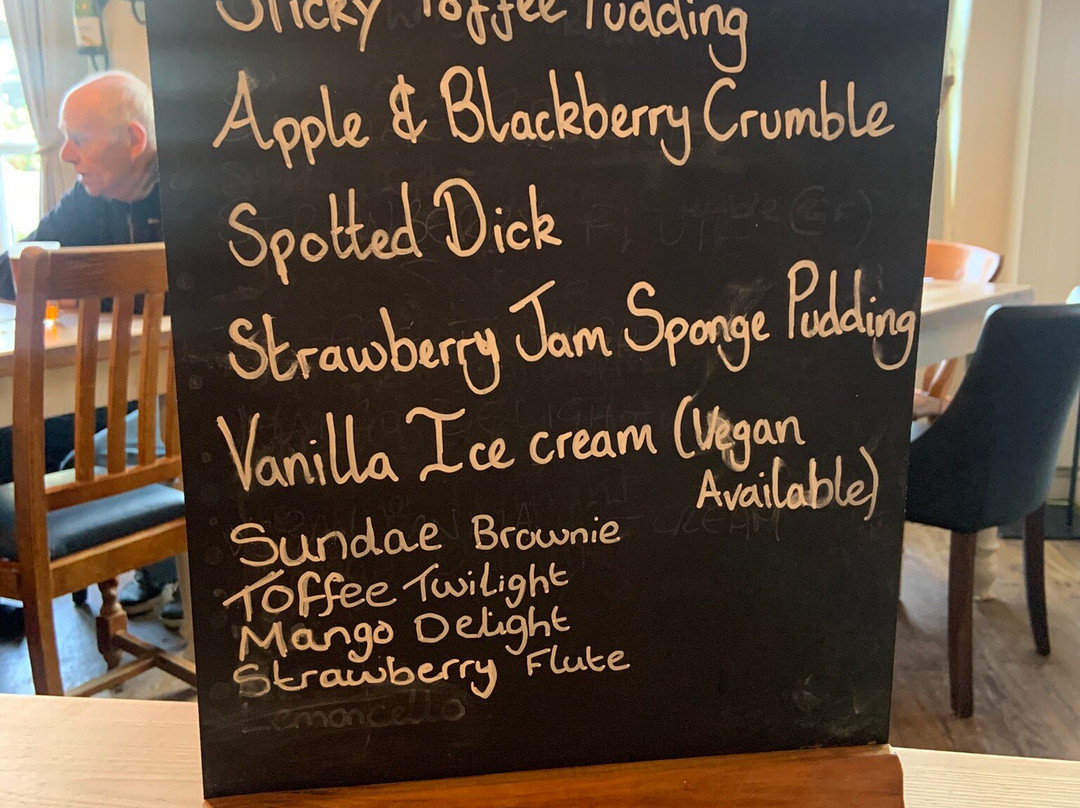 Sticky Toffee Pudding
Apple & Blackberry Crumble
Spotted Dick
Strawberry Jam Sponge Pudding
Vanilla Ice cream (Vegan
Available)
Sundae Brownie
Toffee Twilight
Mango Delight
Strawberry Flute
Lemoncello